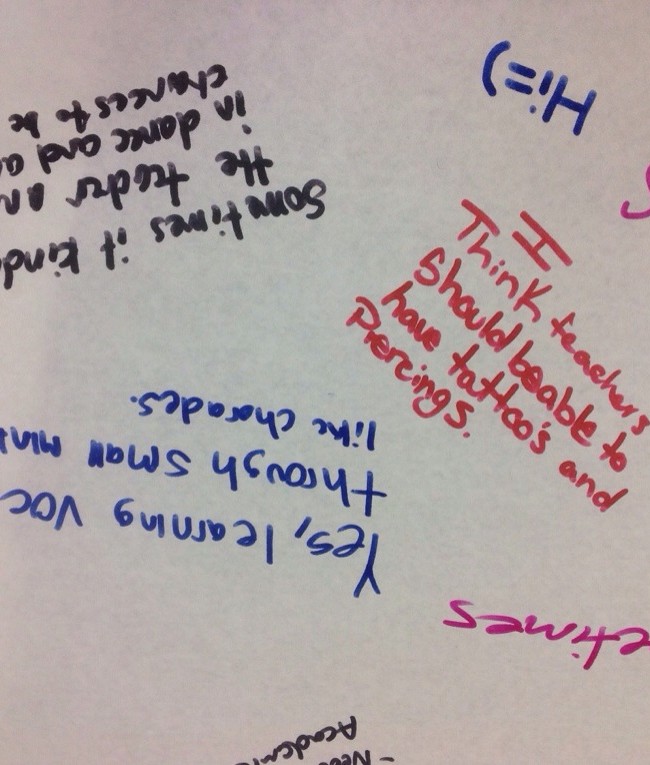 Hi =)
I
Think teachers
Should be able to
have tattoo's and
Piercings.
Sometimes it kind
the
in dance and
chances to be
Yes, learning voc
through small
like charades.
etimes
Academic